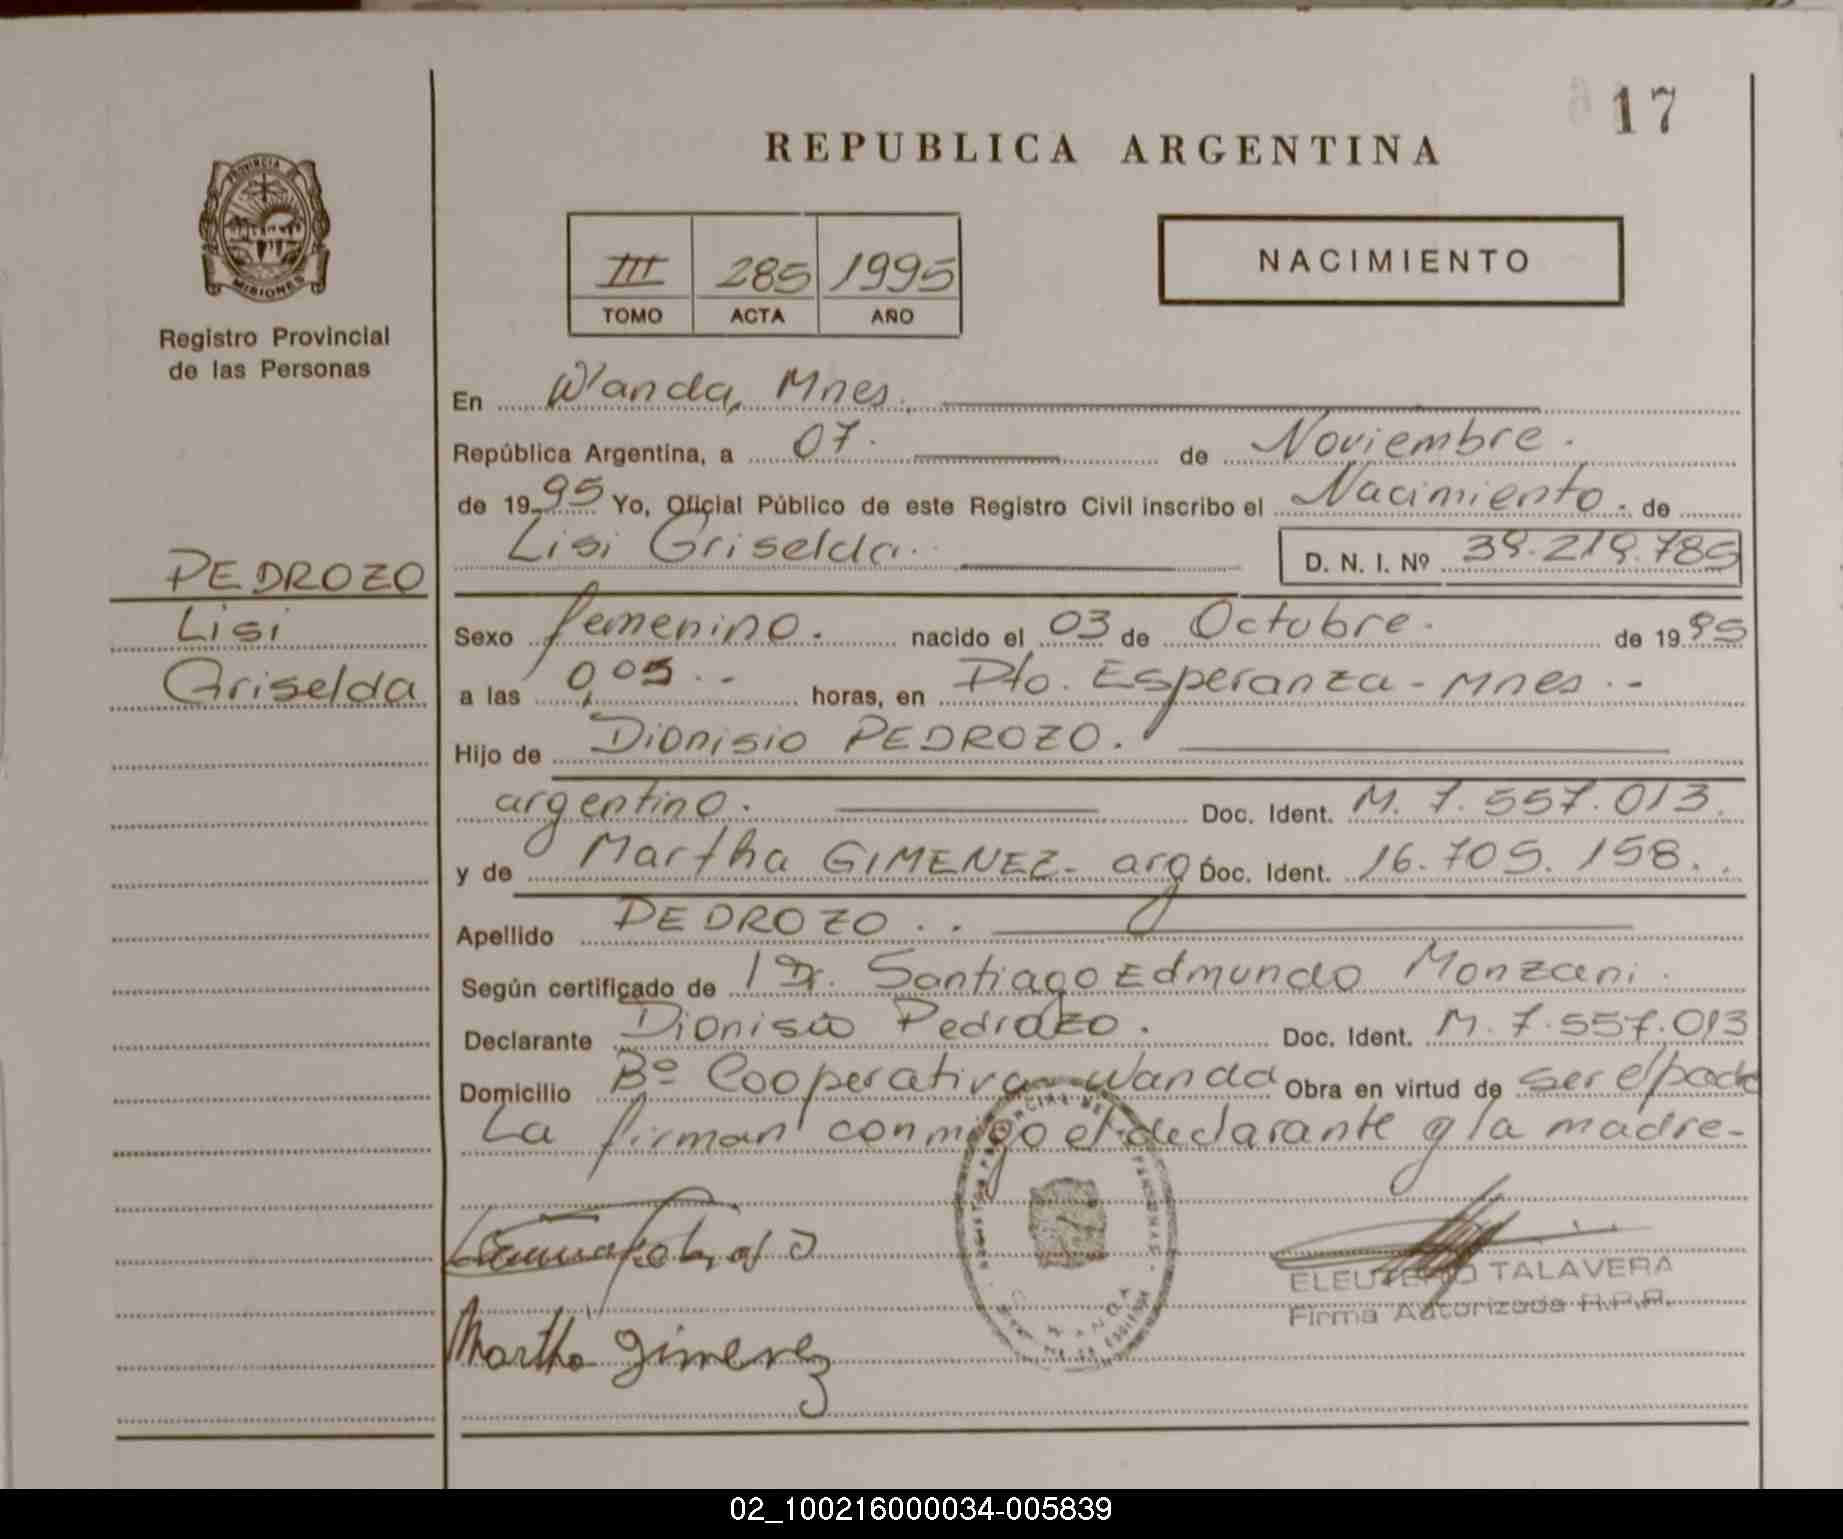 17
REPUBLICA ARGENTINA
PROVINCIA DE
MISIONES
Registro Provincial
de las Personas
III 285 1995
TOMO ACTA AÑO
NACIMIENTO
En Wanda, Mnes.
República Argentina, a 07. de Noviembre.
de 1995 Yo, Oficial Público de este Registro Civil inscribo el Nacimiento. de
Lisi Griselda. D. N. I. Nº 39.219.785
PEDROZO
Lisi
Griselda
Sexo femenino. nacido el 03 de Octubre. de 1995
a las 0,05.. horas, en Pto. Esperanza - Mnes..-
Hijo de Dionisio PEDROZO.
argentino. Doc. Ident. M. 7.557.013.
y de Martha GIMENEZ - arg. Doc. Ident. 16.705.158..
Apellido PEDROZO..
Según certificado de Dr. Santiago Edmundo Monzani.
Declarante Dionisio Pedrozo. Doc. Ident. M. 7.557.013
Domicilio Bº Cooperativa - Wanda Obra en virtud de ser el padre
La firman conmigo el declarante y la madre-
Martha Gimenez
ELEUTERIO TALAVERA
Firma Autorizada R.P.P.
02_100216000034-005839